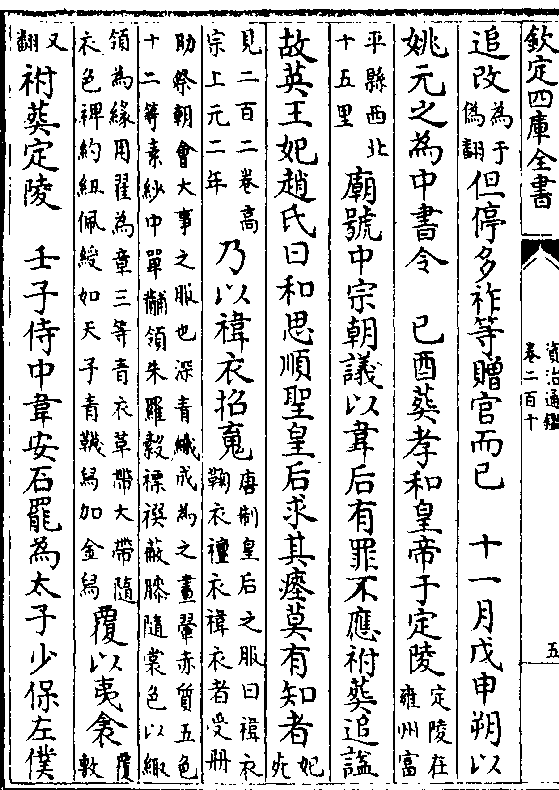 欽定四庫全書
資治通鑑
卷二百十
五
追改為于偽翻但停多祚等贈官而已　十一月戊申朔以
姚元之為中書令　己酉葬孝和皇帝于定陵定陵在雍州富
平縣西北十五里廟號中宗朝議以韋后有罪不應祔葬追諡
故英王妃趙氏曰和思順聖皇后求其瘞莫有知者妃死
見二百二卷高宗上元二年乃以褘衣招䰟唐制皇后之服曰褘衣鞠衣襢衣褘衣者受册
助祭朝會大事之服也深青織成為之畫翬赤質五色十二等素紗中單黼領朱羅縠褾襈蔽膝隨裳色以緅
領為緣用翟為章三等青衣革帶大帶隨衣色裨約紐佩綬如天子青韈舄加金舄覆以夷衾覆敷
又翻祔葬定陵　壬子侍中韋安石罷為太子少保左僕